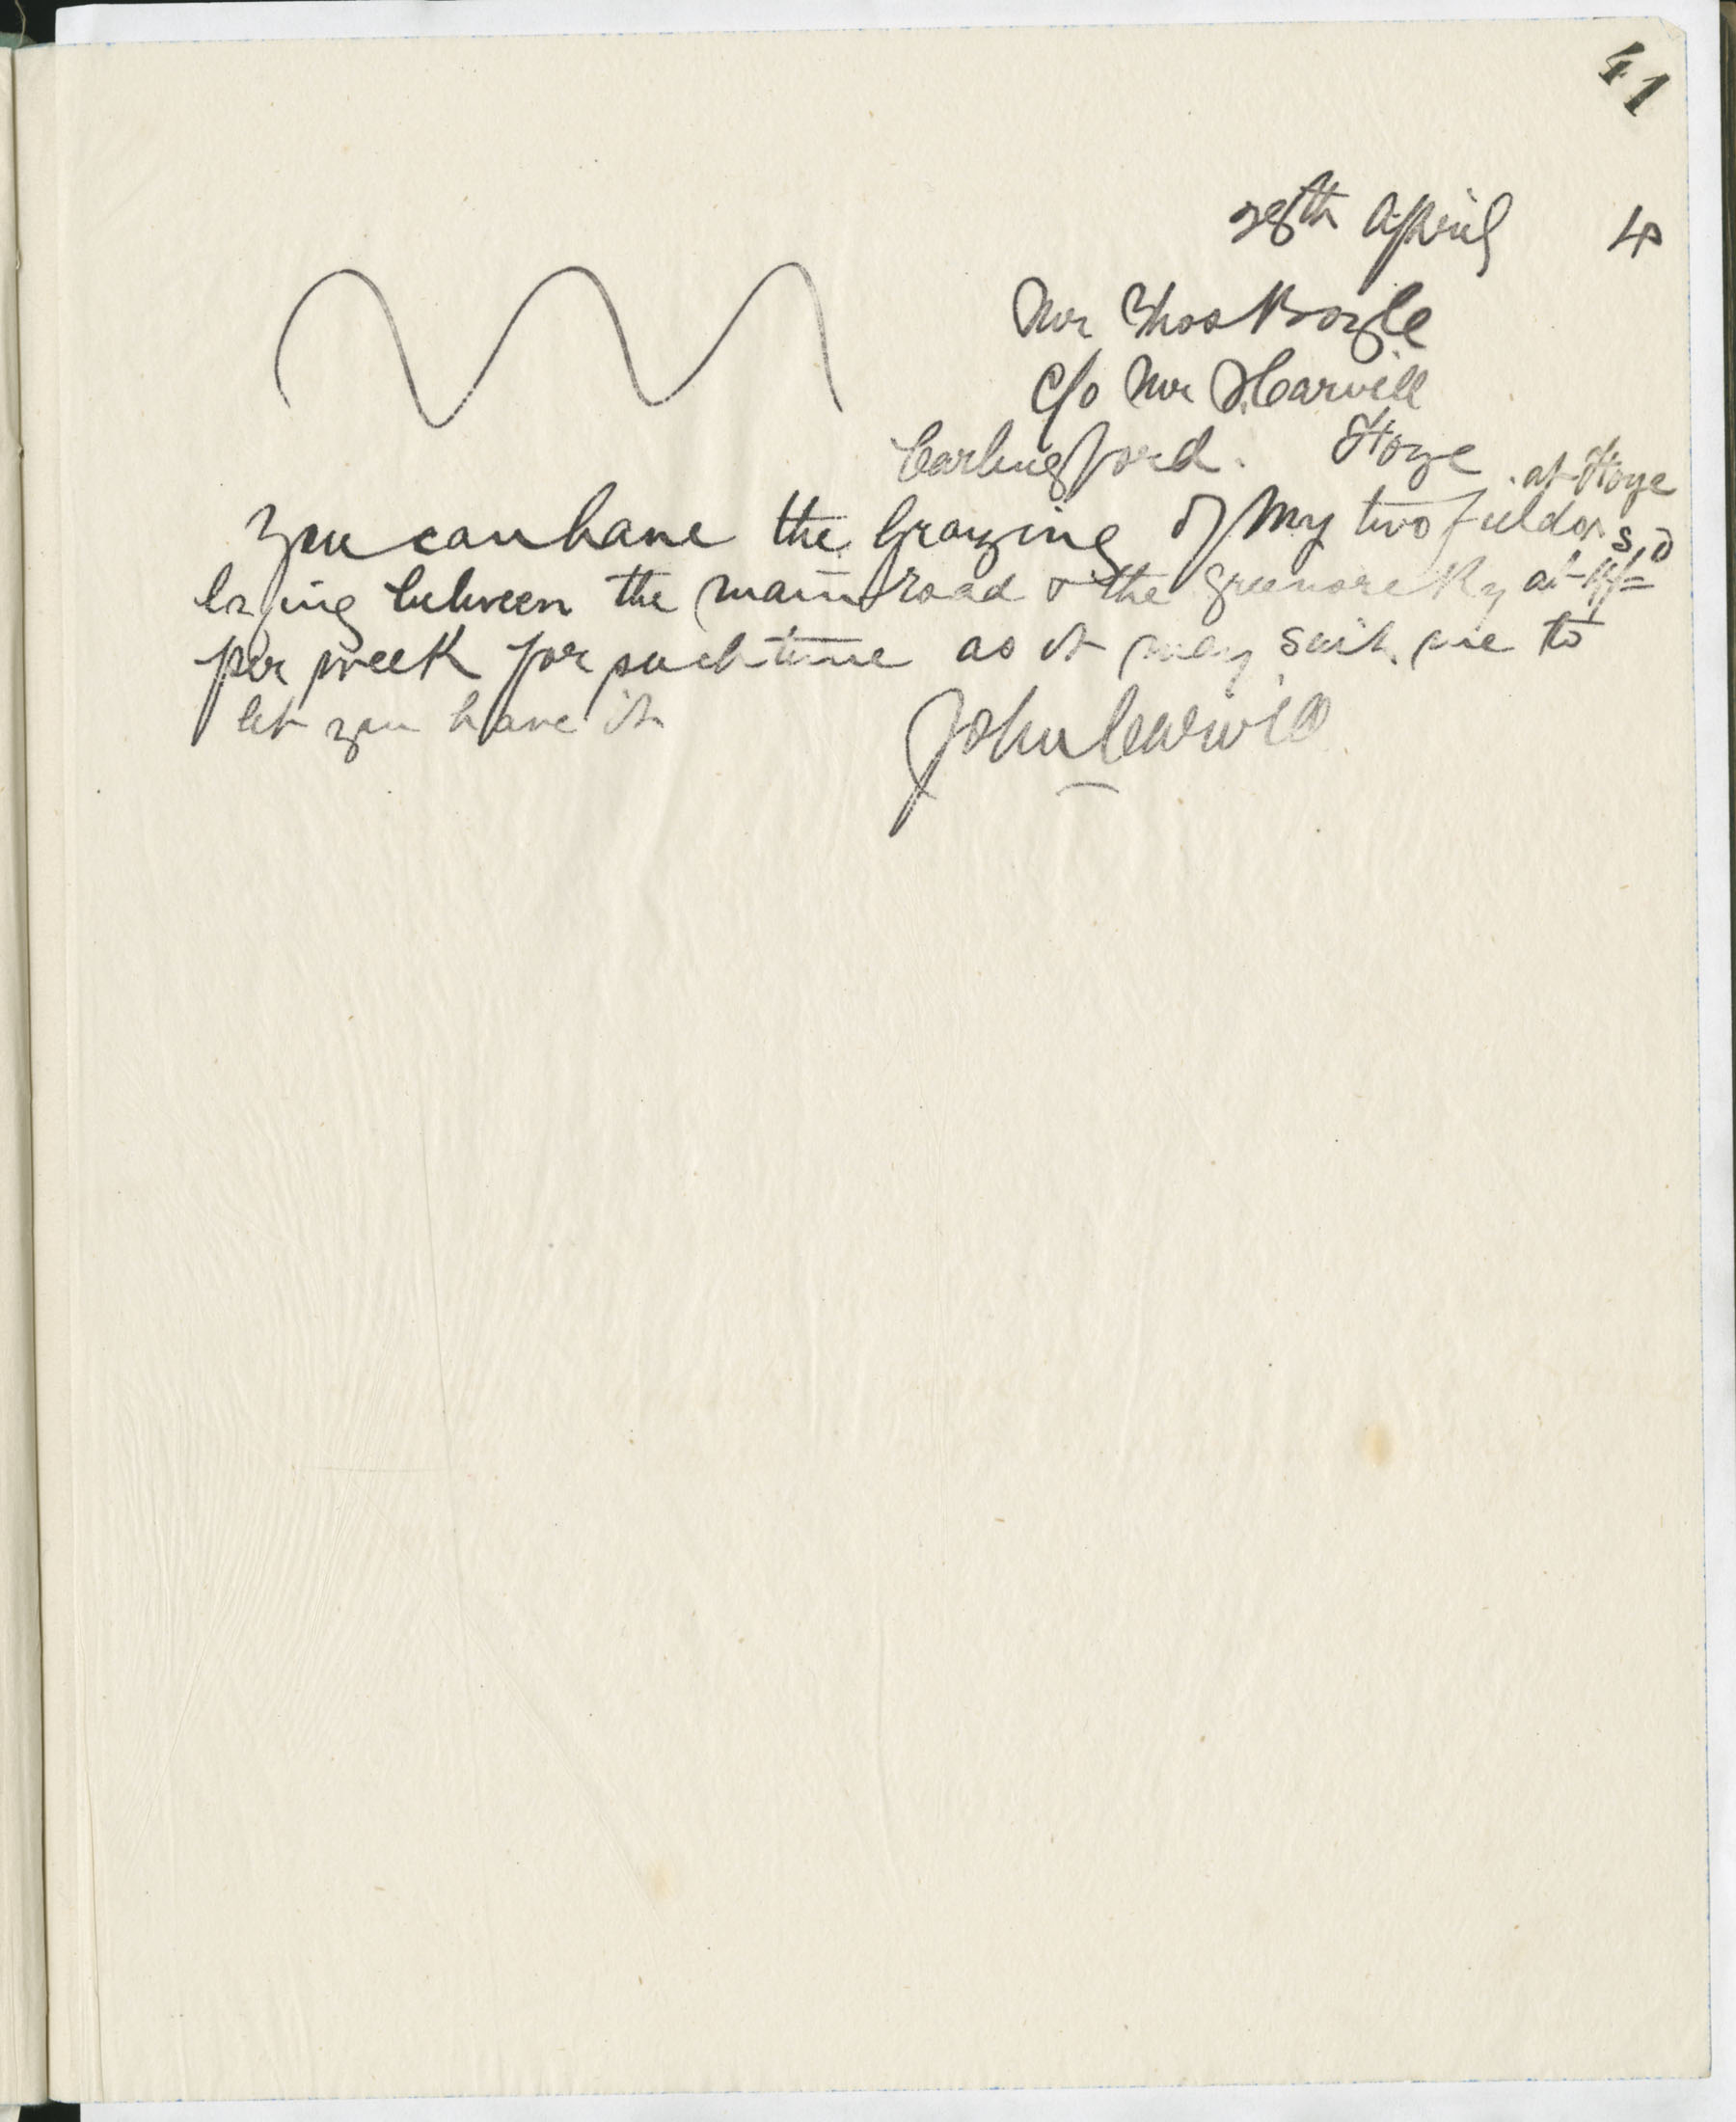 41
28th April 4
Mr Thos Boyle
c/o Mr J. Carvill
Carlingford. Hoye
at Hoye
You can have the Grazing of my two fields
s, d
lying between the main road & the Greenore Ry at
per week for such time as it may suit me to
let you have it
John Carvill